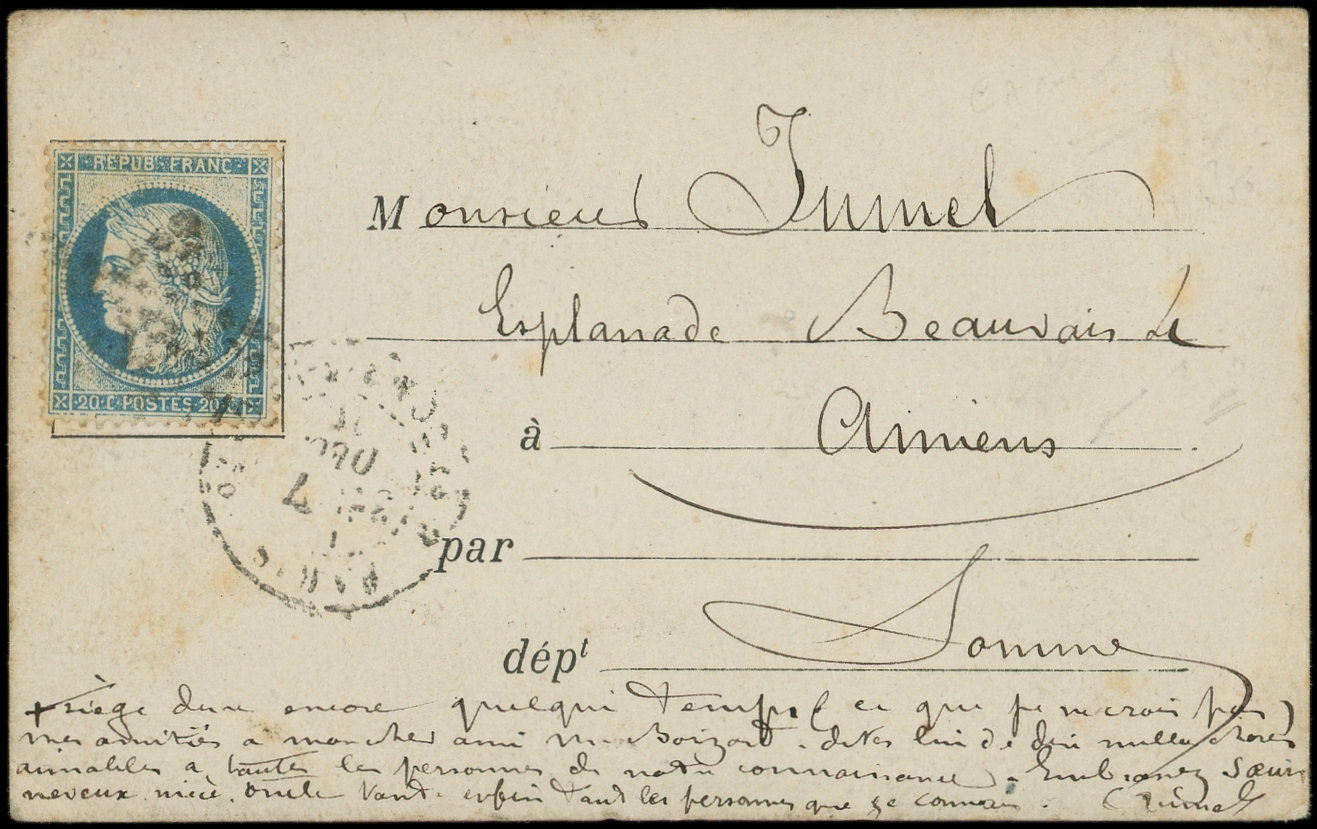 REPUB. FRANC
20. C. POSTES 20. C.
Monsieur Jumel
Esplanade Beauvais
à Amiens
par
dépt Somme
PARIS
7
siége dure encore quelque temps (ce que je ne crois pas)
mes amitiés a mon cher ami Mr Boizard. dites lui de dix mille choses
aimables a toutes les personnes de notre connaissance. Embrassez Sœur
neveux, niece, oncle tante enfin tout les personnes que je connais. Jumel